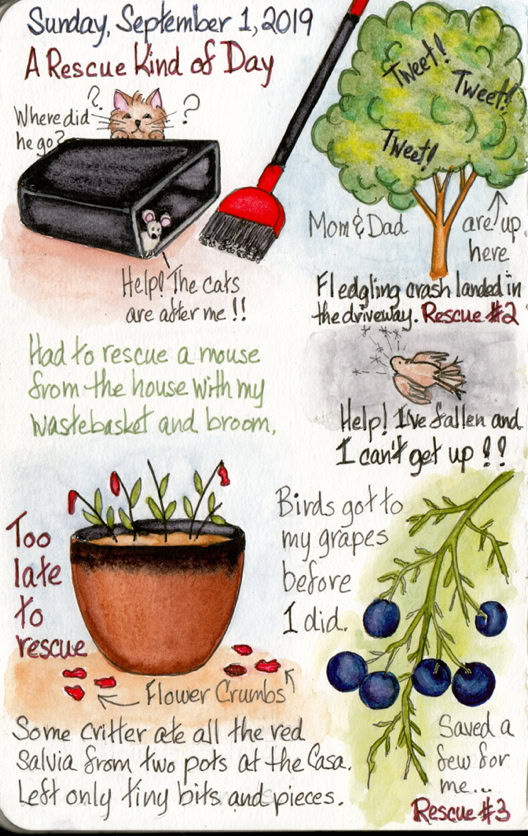 Sunday, September 1, 2019
A Rescue Kind of Day
Where did
he go?
? ?
Help! The cats
are after me!!
Had to rescue a mouse
from the house with my
wastebasket and broom.
Tweet!
Tweet!
Tweet!
Mom & Dad
are up
here
Fledgling crash landed in
the driveway. Rescue #2
Help! I've fallen and
I can't get up!!
Too
late
to
rescue
Flower Crumbs
Some critter ate all the red
salvia from two pots at the Casa.
Left only tiny bits and pieces.
Birds got to
my grapes
before
I did.
Saved a
few for
me...
Rescue #3